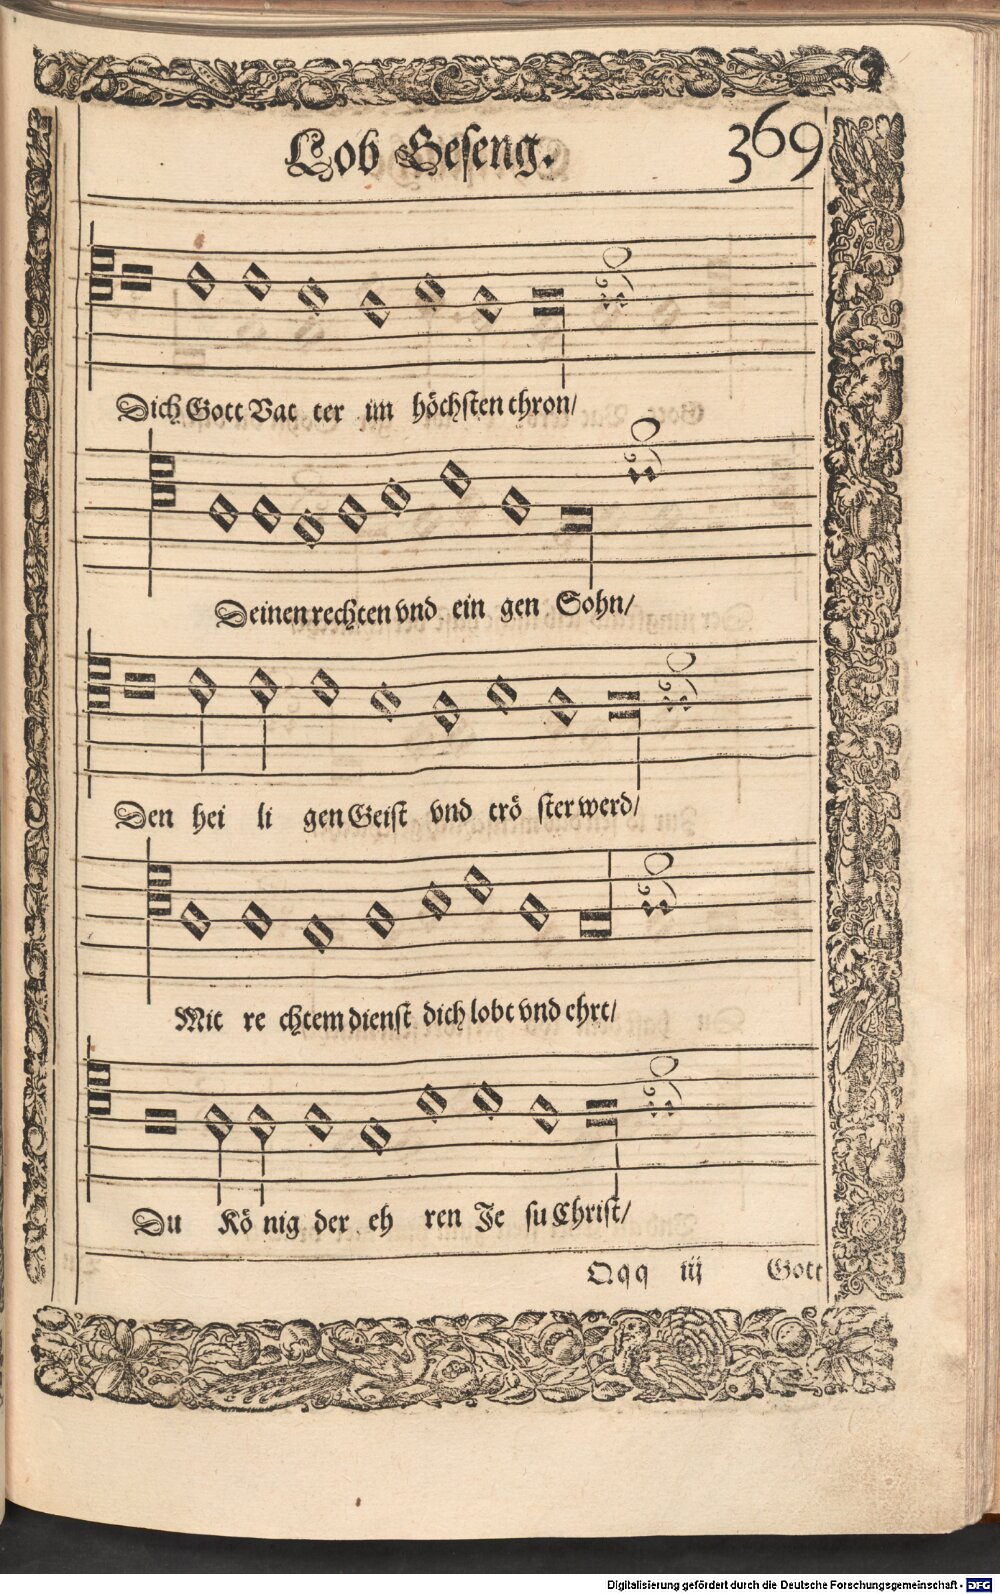 Lob Geseng.
369
Dich Gott Vat ter im höchsten thron/
Deinen rechten vnd ein gen Sohn/
Den hei li gen Geist vnd trö ster werd/
Mit re chtem dienst dich lobt vnd ehrt/
Du Kö nig der eh ren Je su Christ/
Qqq iij Gott
Digitalisierung gefördert durch die Deutsche Forschungsgemeinschaft - DFG